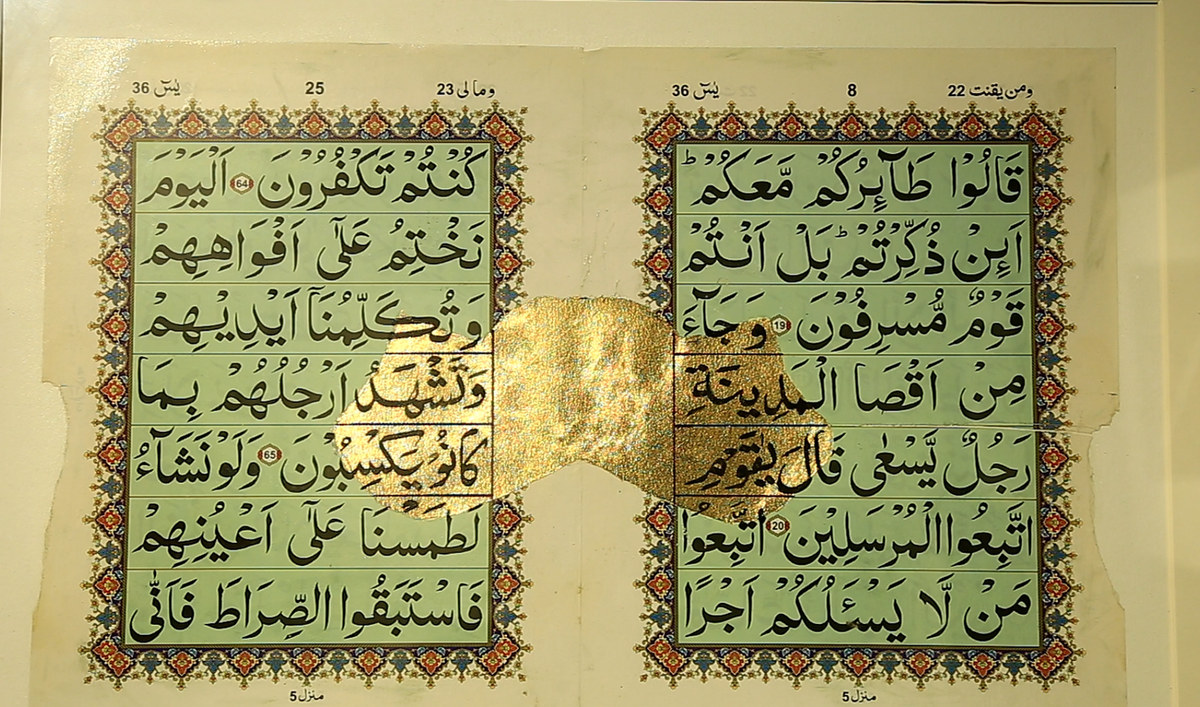 ومن يقنت 22 8 يٰسٓ 36
قَالُوْا طَآئِرُكُمْ مَّعَكُمْ ؕ
اَئِنْ ذُكِّرْتُمْ ؕ بَلْ اَنْتُمْ
قَوْمٌ مُّسْرِفُوْنَ 19 وَ جَآءَ
مِنْ اَقْصَا الْمَدِيْنَةِ
رَجُلٌ يَّسْعٰى قَالَ يٰقَوْمِ
اتَّبِعُوا الْمُرْسَلِيْنَ 20 اتَّبِعُوْا
مَنْ لَّا يَسْـَٔلُكُمْ اَجْرًا
منزل 5
ومالى 23 25 يٰسٓ 36
كُنْتُمْ تَكْفُرُوْنَ 64 اَلْيَوْمَ
نَخْتِمُ عَلٰٓى اَفْوَاهِهِمْ
وَ تُكَلِّمُنَاۤ اَيْدِيْهِمْ
وَ تَشْهَدُ اَرْجُلُهُمْ بِمَا
كَانُوْ يَكْسِبُوْنَ 65 وَ لَوْ نَشَآءُ
لَطَمَسْنَا عَلٰٓى اَعْيُنِهِمْ
فَاسْتَبَقُوا الصِّرَاطَ فَاَنّٰى
منزل 5